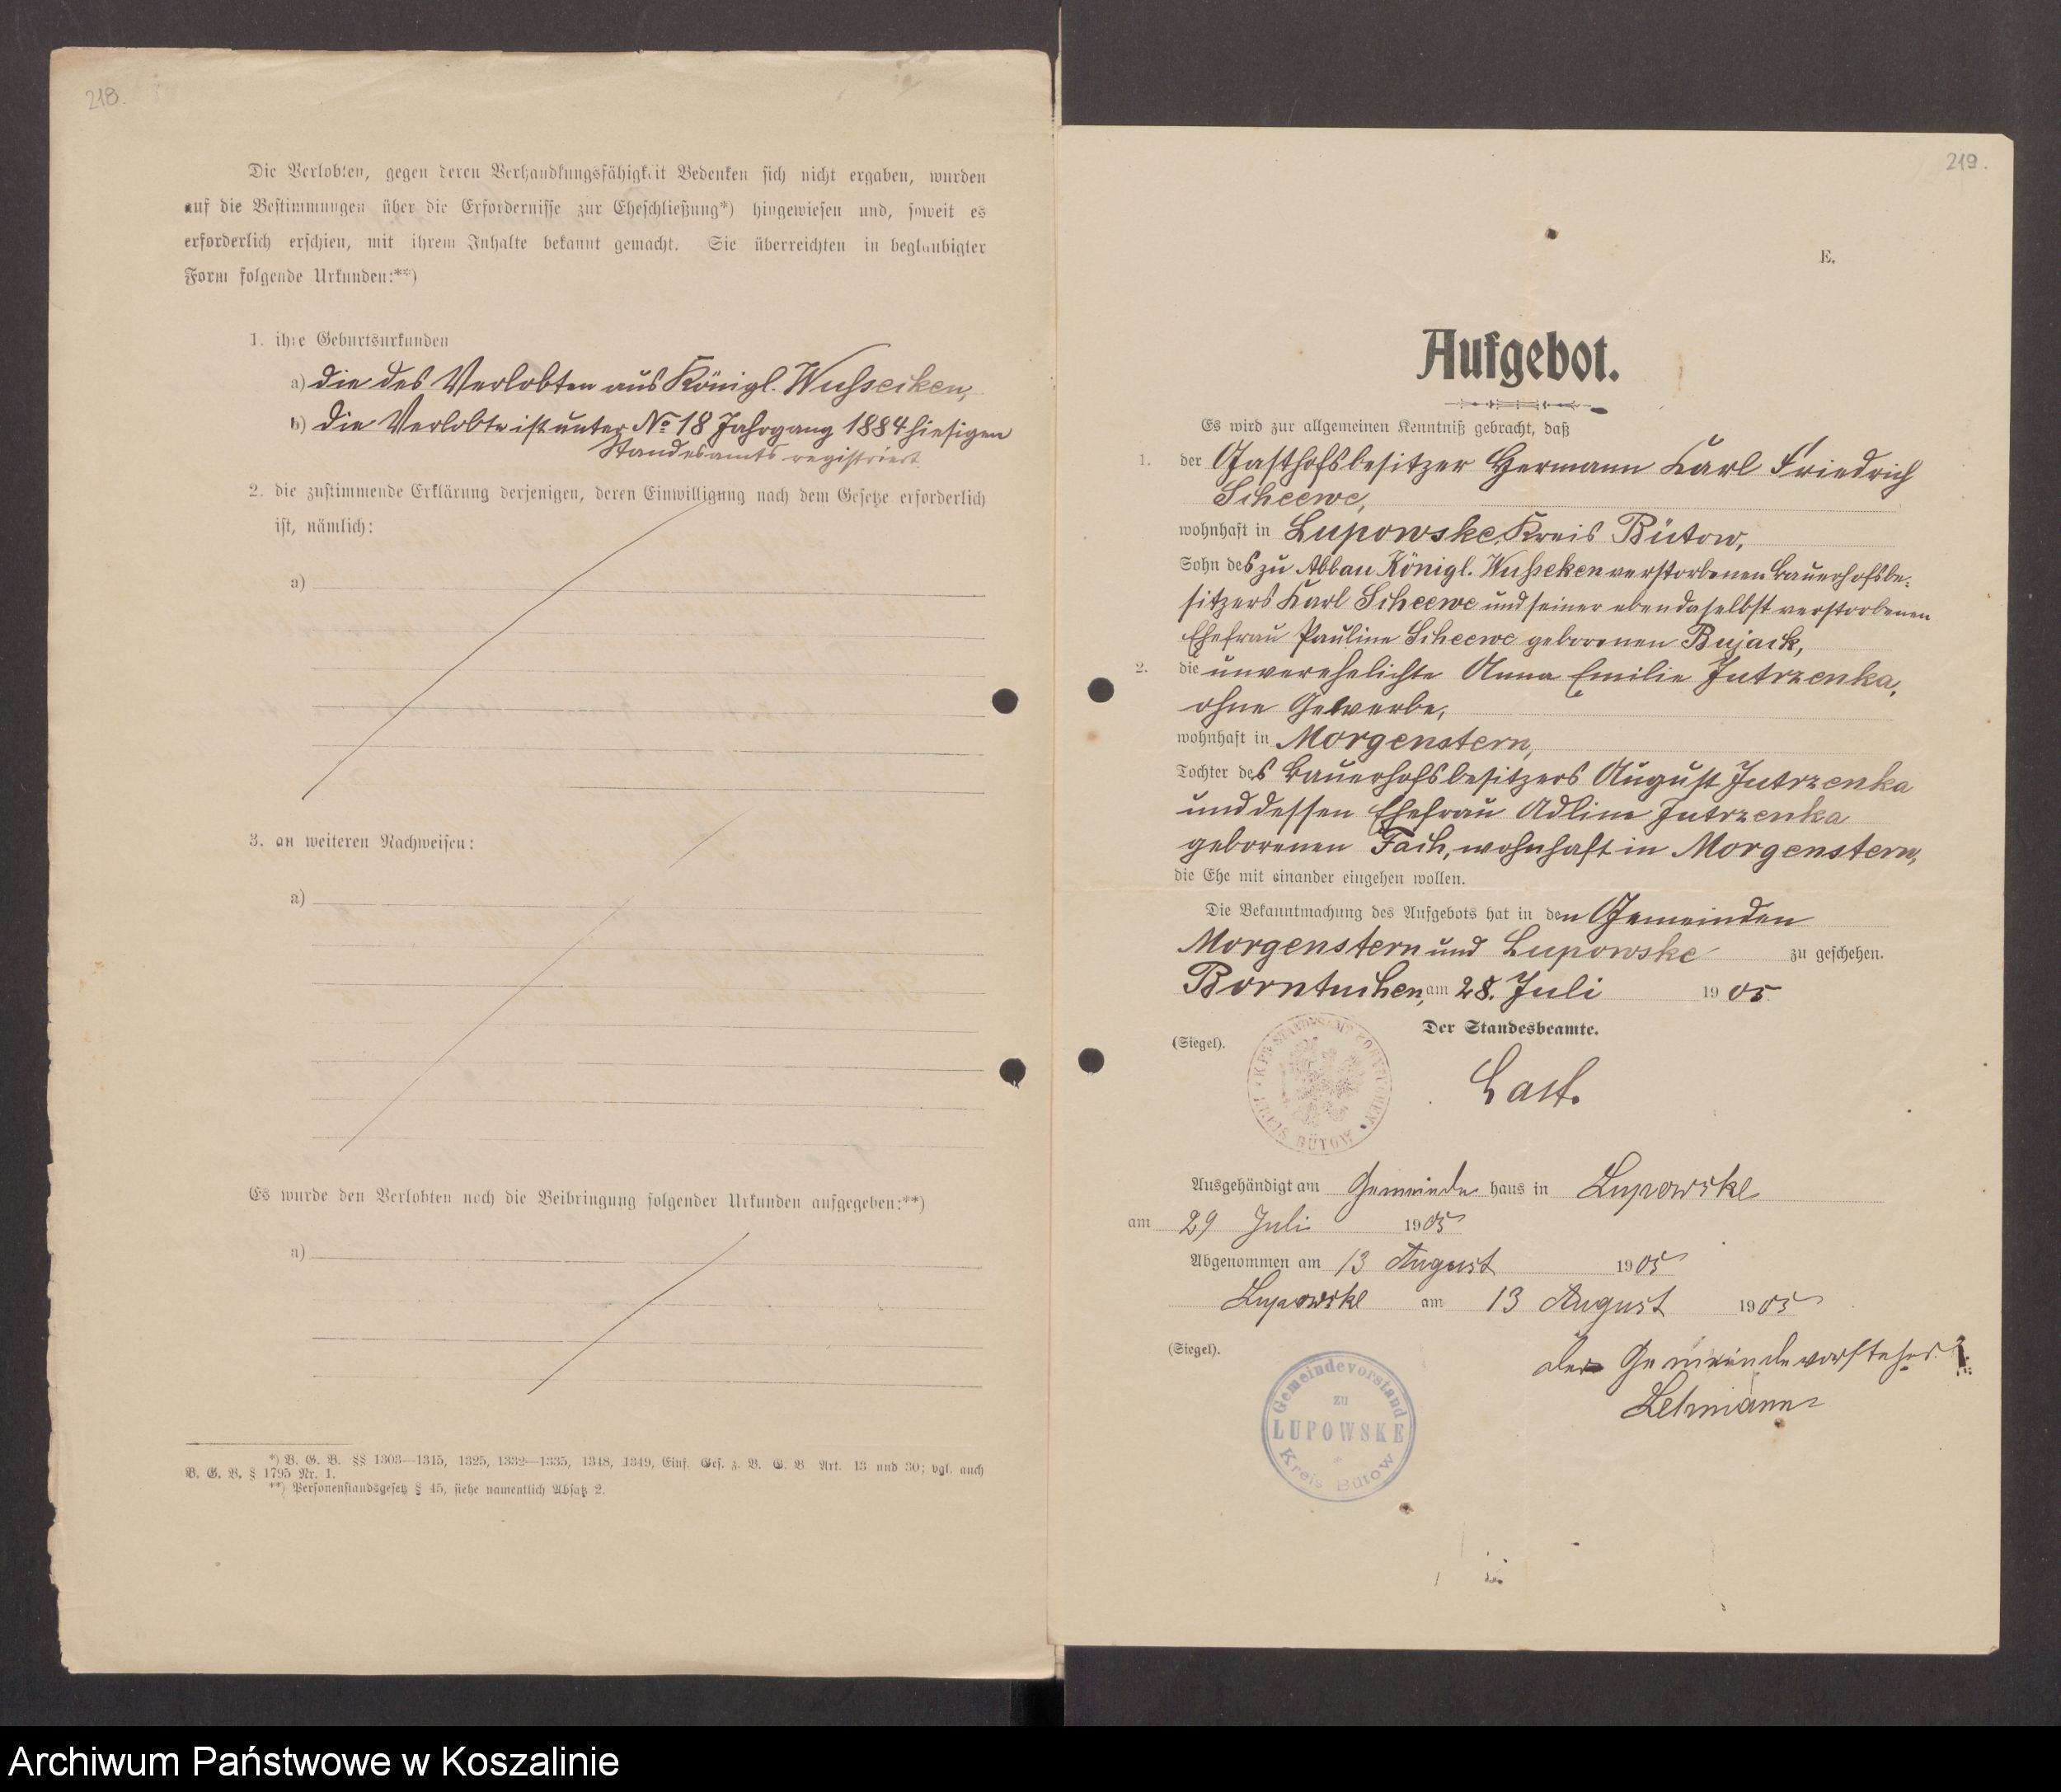 218.
Die Verlobten, gegen deren Verhandlungsfähigkeit Bedenken sich nicht ergaben, wurden
auf die Bestimmungen über die Erfordernisse zur Eheschließung*) hingewiesen und, soweit es
erforderlich erschien, mit ihrem Inhalte bekannt gemacht. Sie überreichten in beglaubigter
Form folgende Urkunden:**)
1. ihre Geburtsurkunden
a) die des Verlobten aus Königl. Wusseken,
b) die Verlobte ist unter No 18 Jahrgang 1884 hiesigen
Standesamts registriert.
2. die zustimmende Erklärung derjenigen, deren Einwilligung nach dem Gesetze erforderlich
ist, nämlich:
a)
3. an weiteren Nachweisen:
a)
Es wurde den Verlobten noch die Beibringung folgender Urkunden aufgegeben:**)
a)
*) B. G. B. §§ 1303—1315, 1325, 1332—1335, 1348, 1349, Einf. Ges. z. B. G. B. Art. 13 und 30; vgl. auch
B. G. B. § 1795 Nr. 1.
**) Personenstandsgesetz § 45, siehe namentlich Absatz 2.
219.
E.
Aufgebot.
Es wird zur allgemeinen Kenntniß gebracht, daß
1. der Gasthofsbesitzer Hermann Karl Friedrich
Scheewe,
wohnhaft in Lupowske, Kreis Bütow,
Sohn des zu Abbau Königl. Wusseken verstorbenen Bauerhofsbe-
sitzers Karl Scheewe und seiner ebendaselbst verstorbenen
Ehefrau Pauline Scheewe geborenen Bujack,
2. die unverehelichte Anna Emilie Jutrzenka,
ohne Gewerbe,
wohnhaft in Morgenstern,
Tochter des Bauerhofsbesitzers August Jutrzenka
und dessen Ehefrau Adline Jutrzenka
geborenen Fach, wohnhaft in Morgenstern,
die Ehe mit einander eingehen wollen.
Die Bekanntmachung des Aufgebots hat in den Gemeinden
Morgenstern und Lupowske zu geschehen.
Borntuchen, am 28. Juli 1905.
Der Standesbeamte.
(Siegel).
KPR. STANDESAMT BORNTUCHEN
KREIS BÜTOW
Last.
Ausgehändigt am Gemeinde haus in Lupowske
am 29 Juli 1905
Abgenommen am 13 August 1905
Lupowske am 13 August 1905
(Siegel).
Der Gemeindevorsteher
Lehmann
Gemeindevorstand
zu
LUPOWSKE
*
Kreis Bütow
Archiwum Państwowe w Koszalinie